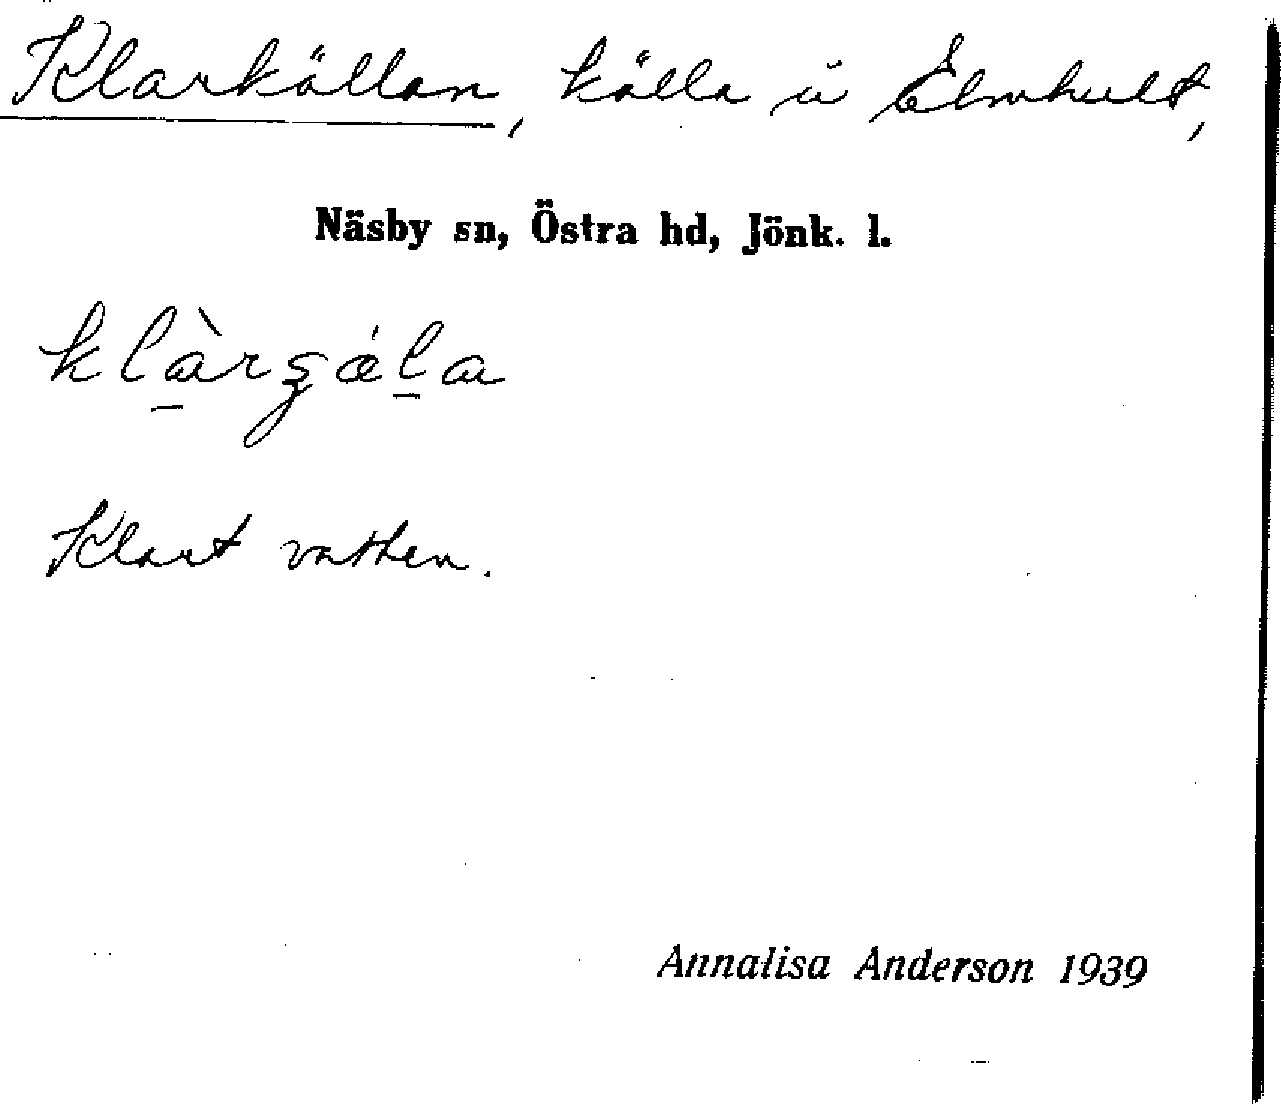 Klarkällan, källa i Elmhult,
Näsby sn, Östra hd, Jönk. l.
Klart vatten.
Annalisa Anderson 1939